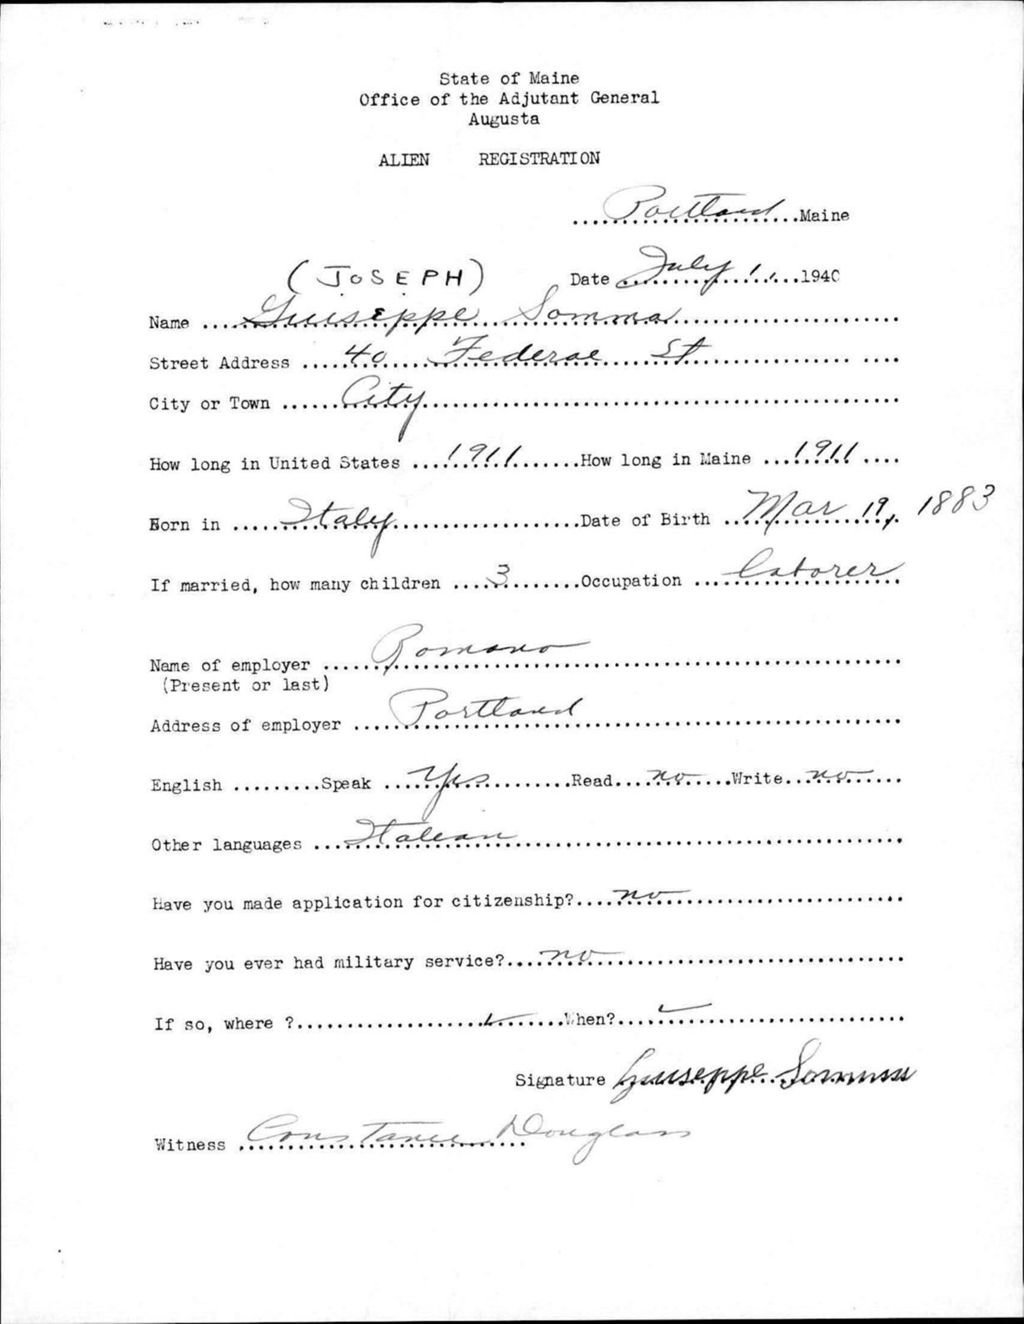 State of Maine
Office of the Adjutant General
Augusta
ALIEN REGISTRATION
Portland Maine
(JOSEPH)
Date July 1, 1940
Name Giuseppe Somma
Street Address 40 Federal St
City or Town City
How long in United States 1911 How long in Maine 1911
Born in Italy Date of Birth Mar 19, 1883
If married, how many children 3 Occupation laborer
Name of employer Romano
(Present or last)
Address of employer Portland
English Speak Yes Read no Write no
Other languages Italian
Have you made application for citizenship? no
Have you ever had military service? no
If so, where ? When?
Signature Giuseppe Somma
Witness Constance Douglass